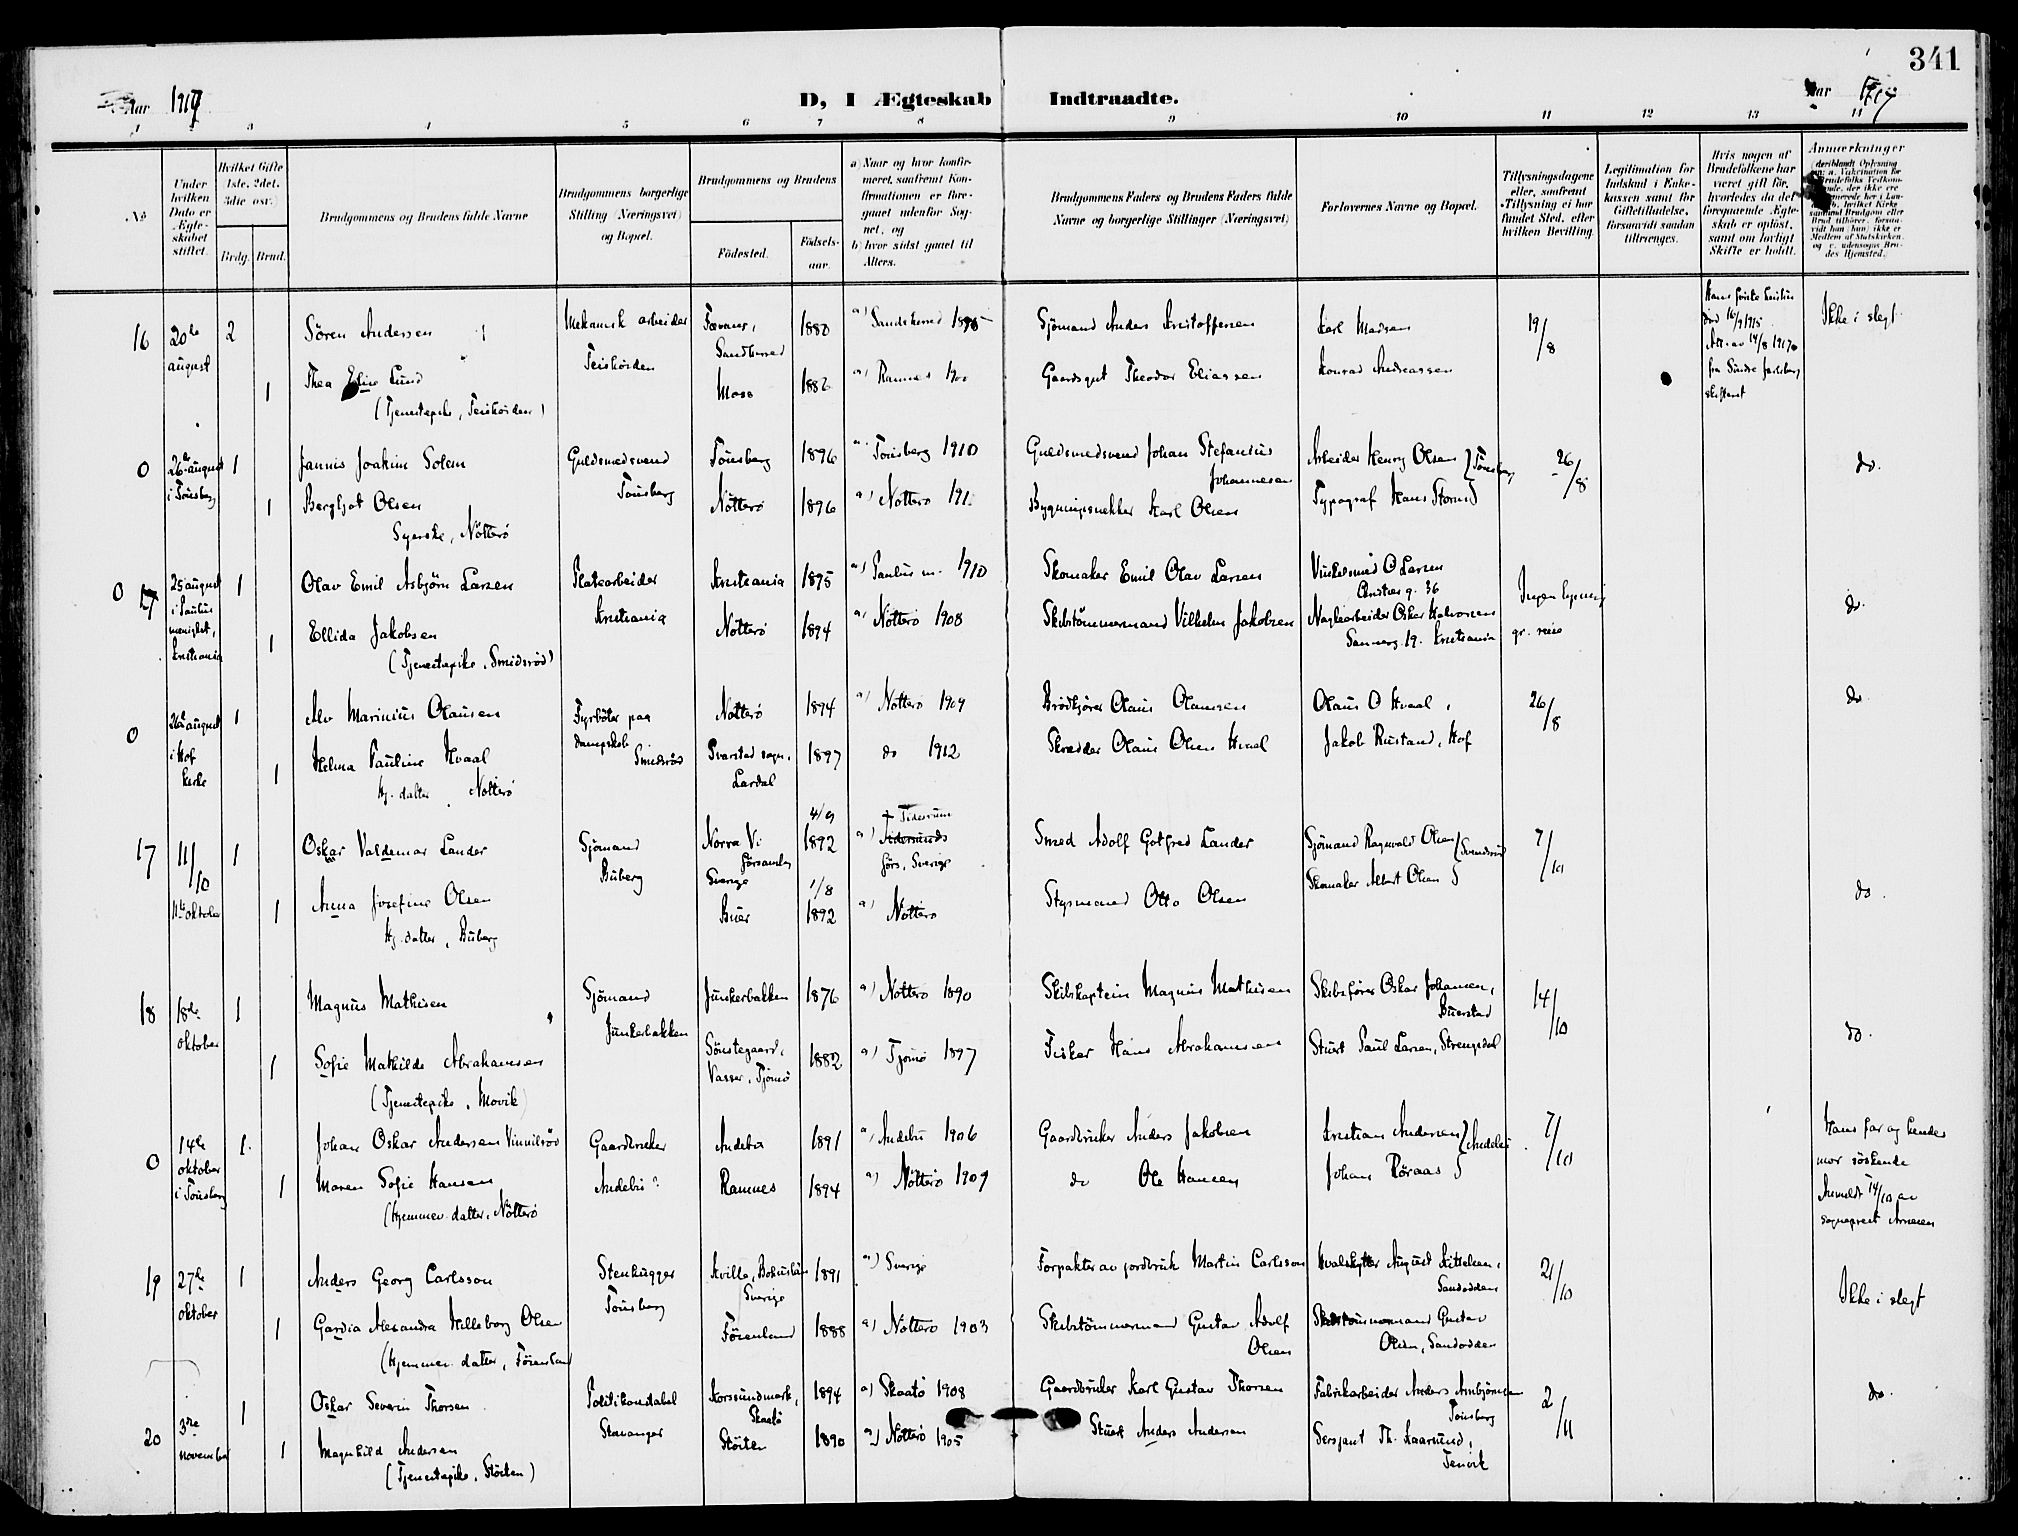 341
Aar 1917
D, I Ægteskab Indtraadte.
Aar 1917
1 2 3 4 5 6 7 8 9 10 11 12 13 14
No
Under hvilken Dato er Ægteskabet stiftet.
Hvilket Gifte 1ste, 2det, 3die osv.)
Brdg. Brud.
Brudgommens og Brudens fulde Navne
Brudgommens borgerlige Stilling (Næringsvei) og Bopæl.
Brudgommens og Brudens
Födested.
Födsels-aar.
a) Naar og hvor konfirmeret, saafremt Konfirmationen er foregaaet udenfor Sognet, og
b) hvor sidst gaaet til Alters.
Brudgommens Faders og Brudens Faders fulde Navne og borgerlige Stillinger (Næringsvei)
Forlovernes Navne og Bopæl.
Tillysningsdagene eller, saafremt Tillysning ei har fundet Sted, efter hvilken Bevilling.
Legitimation for Indskud i Enkekassen samt for Giftetilladelse, forsaavidt saadan tiltrænges.
Hvis nogen af Brudefolkene har været gift før, hvorledes da det foregaaende Ægteskab er oplöst, samt om lovligt Skifte er holdt.
Anmærkninger
16 20de august 2 Sören Andersen Mekanisk arbeider Teiehöiden Sandherred 1880 a) Sandeherred 1895 Sjömand Anders Kristoffersen Karl Madsen 19/8 Ikke i slegt
död 16/9 1915 Att. av 14/8 1917 fra Söndre Jarlsberg
1 Thea Elise Lund Moss 1886 a) Ramnes 1900 Gaardsgut Theodor Eliassen Konrad Andreassen
(Tjenestepike, Teiehöiden)
0 26de august i Tönsberg 1 Jannis Joakim Solem Guldsmedsvend Tönsberg Tönsberg 1896 a) Tönsberg 1910 Guldsmedsvend Johan Stefanius Johannesen Arbeider Henry Olsen } Tönsberg 26/8 do.
1 Bergljot Olsen Nötterö 1896 a) Nötterö Bygningssnekker Karl Olsen Typograf Hans Storm
Syerske, Nötterö
0 25 august i Paulus menighet, Kristiania 1 Olav Emil Asbjörn Larsen Platearbeider Kristiania Kristiania 1895 a) Paulus m. 1910 Skomaker Emil Olav Larsen O Larsen g. 36 Ingen lysning do.
1 Ellida Jakobsen Nötterö 1894 a) Nötterö 1908 Skibstömmermand Vilhelm Jakobsen Oskar Halvorsen 19. Kristiania
(Tjenestepike, Smidsröd)
0 26de august i Hof kirke 1 Alv Marinius Olausen Fyrböter paa dampskib Smidsröd Nötterö 1894 a) Nötterö 1909 Brödkjörer Olaus Olausen Olaus O Hvaal 26/8 do
1 Helma Pauline Hvaal Svarstad sogn, Lardal 1897 do 1912 Skredder Olaus Olsen Hvaal Jakob Rustand, Hof
Hj. datter Nötterö
17 11/10 11te oktober 1 Oskar Valdemar Lander Sjömand Buberg Norra Vi församling Sverige 4/9 1892 a) Tidersrum förs. Sverige Smed Adolf Gotfred Lander Sjömand Ragnvald Olsen 7/10
1 Anna Josefine Olsen Buer 1/8 1892 a) Nötterö Styrmand Otto Olsen Skomaker Albert Olsen do.
Hj. datter, Buberg
18 18de oktober 1 Magnus Mathisen Sjömand Junkerbakken Junkerbakken 1876 a) Nötterö 1890 Skibskaptein Magnus Mathisen Skibsförer Oskar Johansen, Buerstad 14/10
1 Sofie Mathilde Abrahamsen Sönstegaard, Vasser, Tjömö 1882 a) Tjömö 1897 Fisker Hans Abrahamsen Stuert Paul Larsen, Strengsdal do.
(Tjenestepike, Movik)
0 14de oktober i Tönsberg 1. Johan Oskar Andersen Vinnilröd Gaardbruker Andebu Andebu 1891 a) Andebu 1906 Gaardbruker Anders Jakobsen Kristian Andersen } Andebu 7/10 Hans far og hendes mor söskende
Anmeldt 14/10 av sogneprest Arnesen
1 Maren Sofie Hansen Ramnes 1894 a) Nötterö 1909 do Ole Hansen Johan Röraas
(Hjemmev. datter, Nötterö
19 27de oktober 1 Anders Georg Carlsson Stenhugger Tönsberg Kville, Bohuslän Sverige 1891 a) Sverige Forpakter av jordbruk Martin Carlsson Hvalskytter August Kittelsen, Sandodden 21/10 Ikke i slegt
1 Gardia Alexandra Hilleborg Olsen Föienland 1888 a) Nötterö 1903 Skibstömmermand Gustav Adolf Olsen Skibstömmermand Gustav Olsen, Sandodden
(Hjemmev. datter, Föienland
20 3die november 1 Oskar Severin Thorsen Politikonstabel Stavanger Korssundmark, Skaatö 1894 a) Skaatö 1908 Gaardbruker Karl Gustav Thorsen Fabrikarbeider Anders Arnbjörnsen Tönsberg 2/11 do
1 Magnhild Andersen Störten 1890 a) Nötterö 1905 Stuert Anders Andersen Sersjant Th. Kaarsund, Tenvik
(Tjenestepike, Störten)